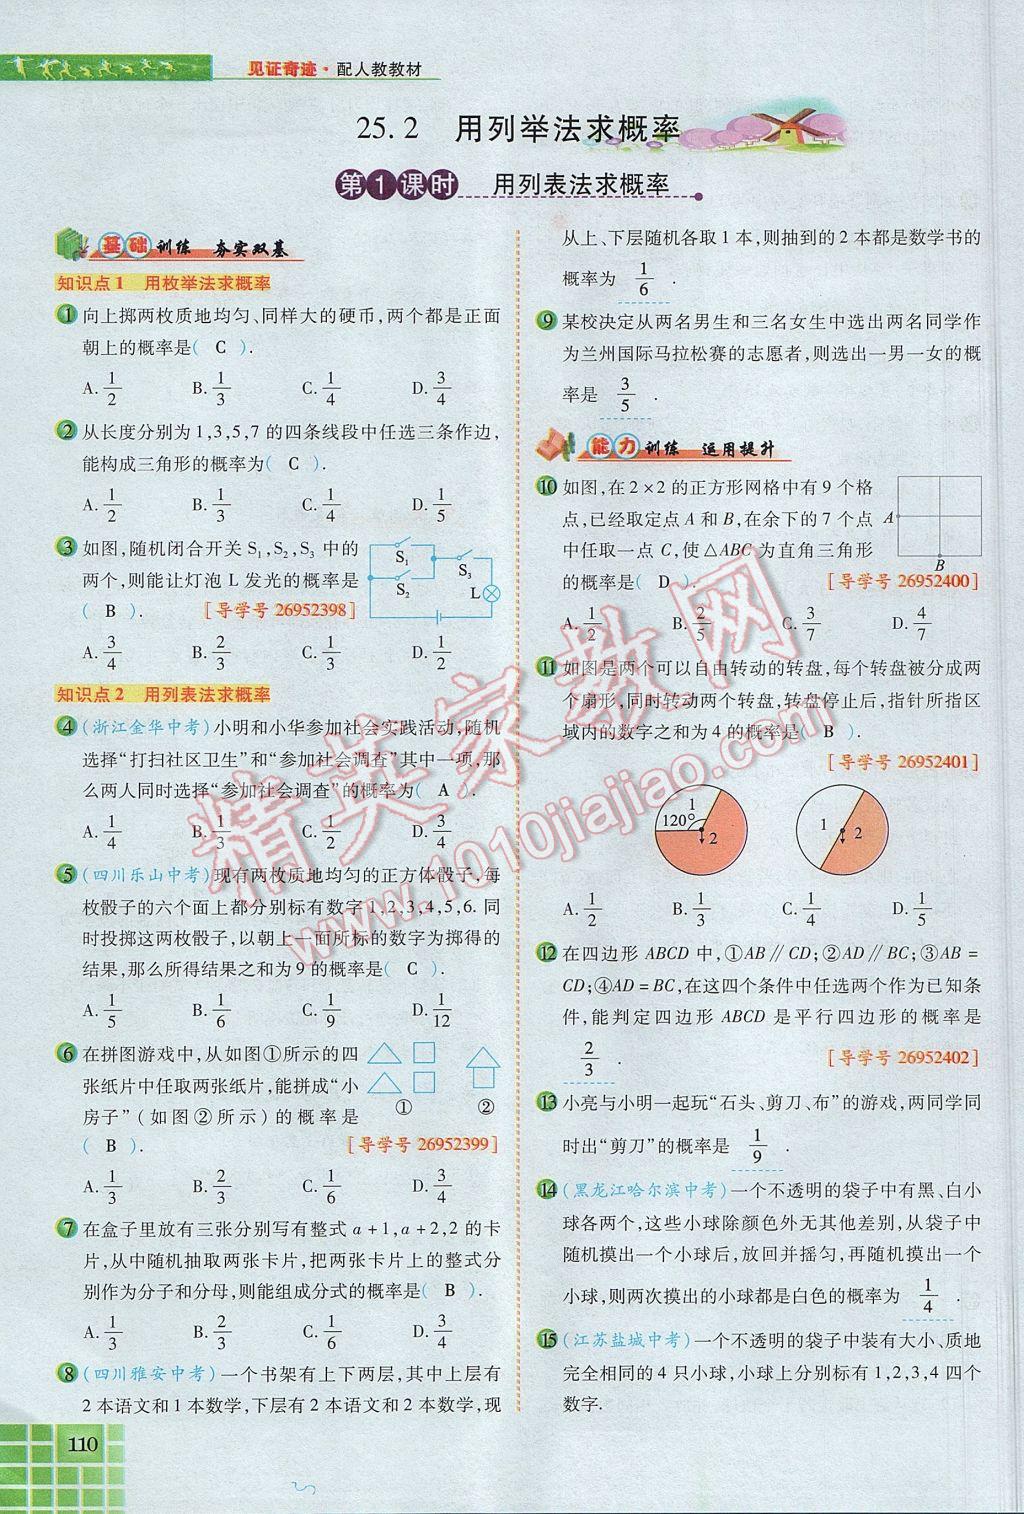 见证奇迹·配人教教材
25.2 用列举法求概率
第1课时 用列表法求概率
基础训练 夯实双基
知识点1 用枚举法求概率
1 向上掷两枚质地均匀、同样大的硬币,两个都是正面
朝上的概率是( C ).
A. 1/2 B. 1/3 C. 1/4 D. 3/4
2 从长度分别为1,3,5,7的四条线段中任选三条作边,
能构成三角形的概率为( C ).
A. 1/2 B. 1/3 C. 1/4 D. 1/5
3 如图,随机闭合开关S₁,S₂,S₃中的
两个,则能让灯泡L发光的概率是
( B ). [导学号 26952398]
S₁ S₂ S₃ L
A. 3/4 B. 2/3 C. 1/3 D. 1/2
知识点2 用列表法求概率
4 (浙江金华中考)小明和小华参加社会实践活动,随机
选择“打扫社区卫生”和“参加社会调查”其中一项,那
么两人同时选择“参加社会调查”的概率为( A ).
A. 1/4 B. 1/3 C. 1/2 D. 3/4
5 (四川乐山中考)现有两枚质地均匀的正方体骰子,每
枚骰子的六个面上都分别标有数字1,2,3,4,5,6.同
时投掷这两枚骰子,以朝上一面所标的数字为掷得的
结果,那么所得结果之和为9的概率是( C ).
A. 1/5 B. 1/6 C. 1/9 D. 1/12
6 在拼图游戏中,从如图①所示的四
张纸片中任取两张纸片,能拼成“小
房子”(如图②所示)的概率是
( B ). [导学号 26952399]
① ②
A. 1/3 B. 2/3 C. 1/6 D. 3/4
7 在盒子里放有三张分别写有整式a+1,a+2,2的卡
片,从中随机抽取两张卡片,把两张卡片上的整式分
别作为分子和分母,则能组成分式的概率是( B ).
A. 1/3 B. 2/3 C. 1/6 D. 3/4
8 (四川雅安中考)一个书架有上下两层,其中上层有
2本语文和1本数学,下层有2本语文和2本数学,现
110
从上、下层随机各取1本,则抽到的2本都是数学书的
概率为 1/6 .
9 某校决定从两名男生和三名女生中选出两名同学作
为兰州国际马拉松赛的志愿者,则选出一男一女的概
率是 3/5 .
能力训练 运用提升
10 如图,在2×2的正方形网格中有9个格
点,已经取定点A和B,在余下的7个点
中任取一点C,使△ABC为直角三角形
的概率是( D ). [导学号 26952400]
A B
A. 1/2 B. 2/5 C. 3/7 D. 4/7
11 如图是两个可以自由转动的转盘,每个转盘被分成两
个扇形,同时转动两个转盘,转盘停止后,指针所指区
域内的数字之和为4的概率是( B ).
[导学号 26952401]
1 120° 2 1 2
A. 1/2 B. 1/3 C. 1/4 D. 1/5
12 在四边形ABCD中,①AB∥CD;②AD∥BC;③AB=
CD;④AD=BC,在这四个条件中任选两个作为已知条
件,能判定四边形ABCD是平行四边形的概率是
2/3 . [导学号 26952402]
13 小亮与小明一起玩“石头、剪刀、布”的游戏,两同学同
时出“剪刀”的概率是 1/9 .
14 (黑龙江哈尔滨中考)一个不透明的袋子中有黑、白小
球各两个,这些小球除颜色外无其他差别,从袋子中
随机摸出一个小球后,放回并摇匀,再随机摸出一个
小球,则两次摸出的小球都是白色的概率为 1/4 .
15 (江苏盐城中考)一个不透明的袋子中装有大小、质地
完全相同的4只小球,小球上分别标有1,2,3,4四个
数字.
精英家教网
www.1010jiajiao.com